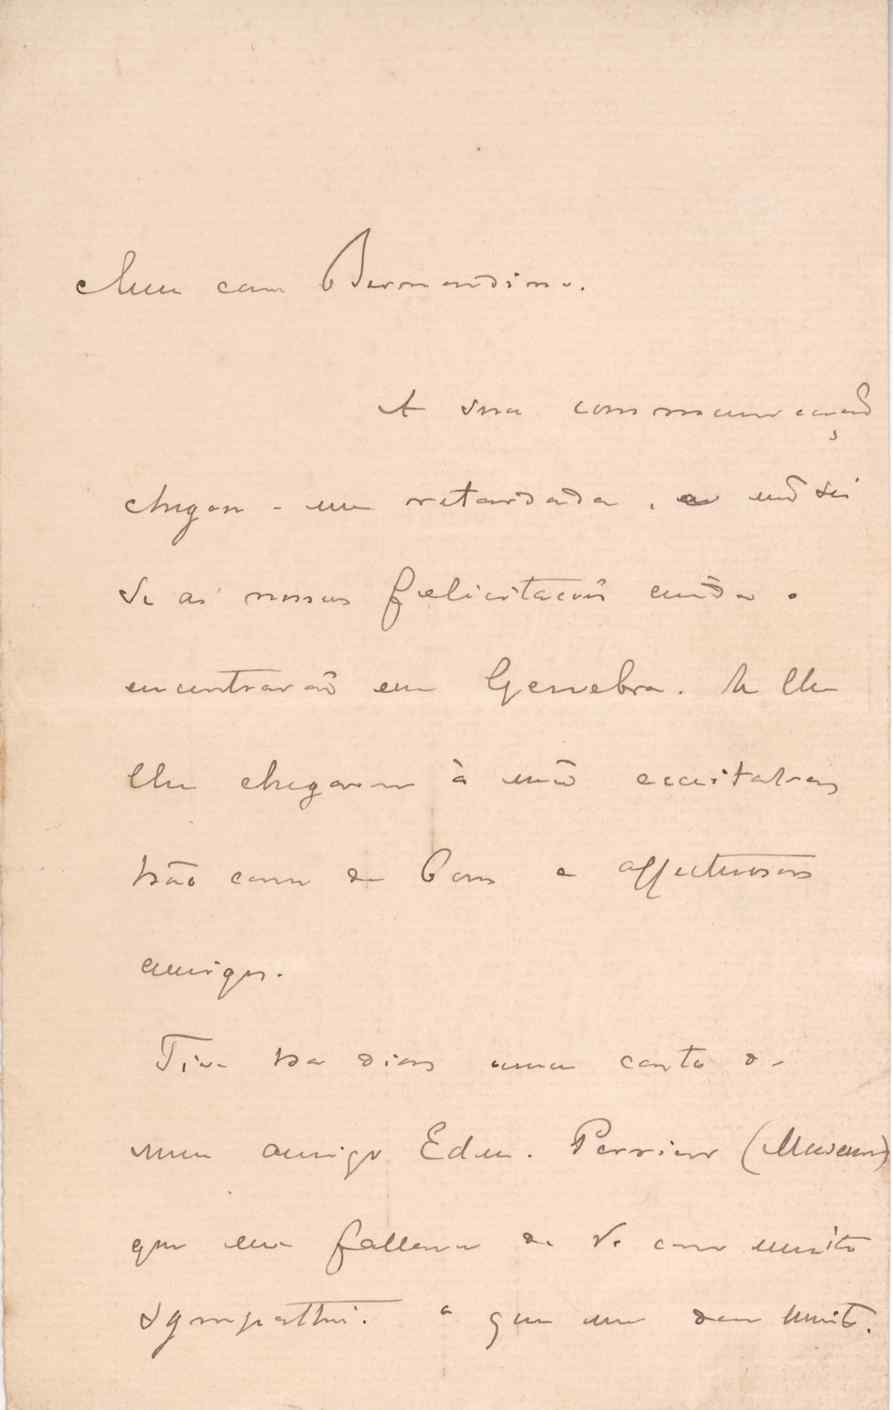 Meu caro Bernardino.
A sua communicação
chegou-me retardada, e não sei
se as nossas felicitações ainda o
encontrarão em Genebra. Se
lhe chegarem à mão acceital-as
hão como de bons e affectuosos
amigos.
Tive ha dias uma carta do
meu amigo Edm. Perrier (Museum)
que me fallava de V. com muita
sympathia. o que me deu muito.